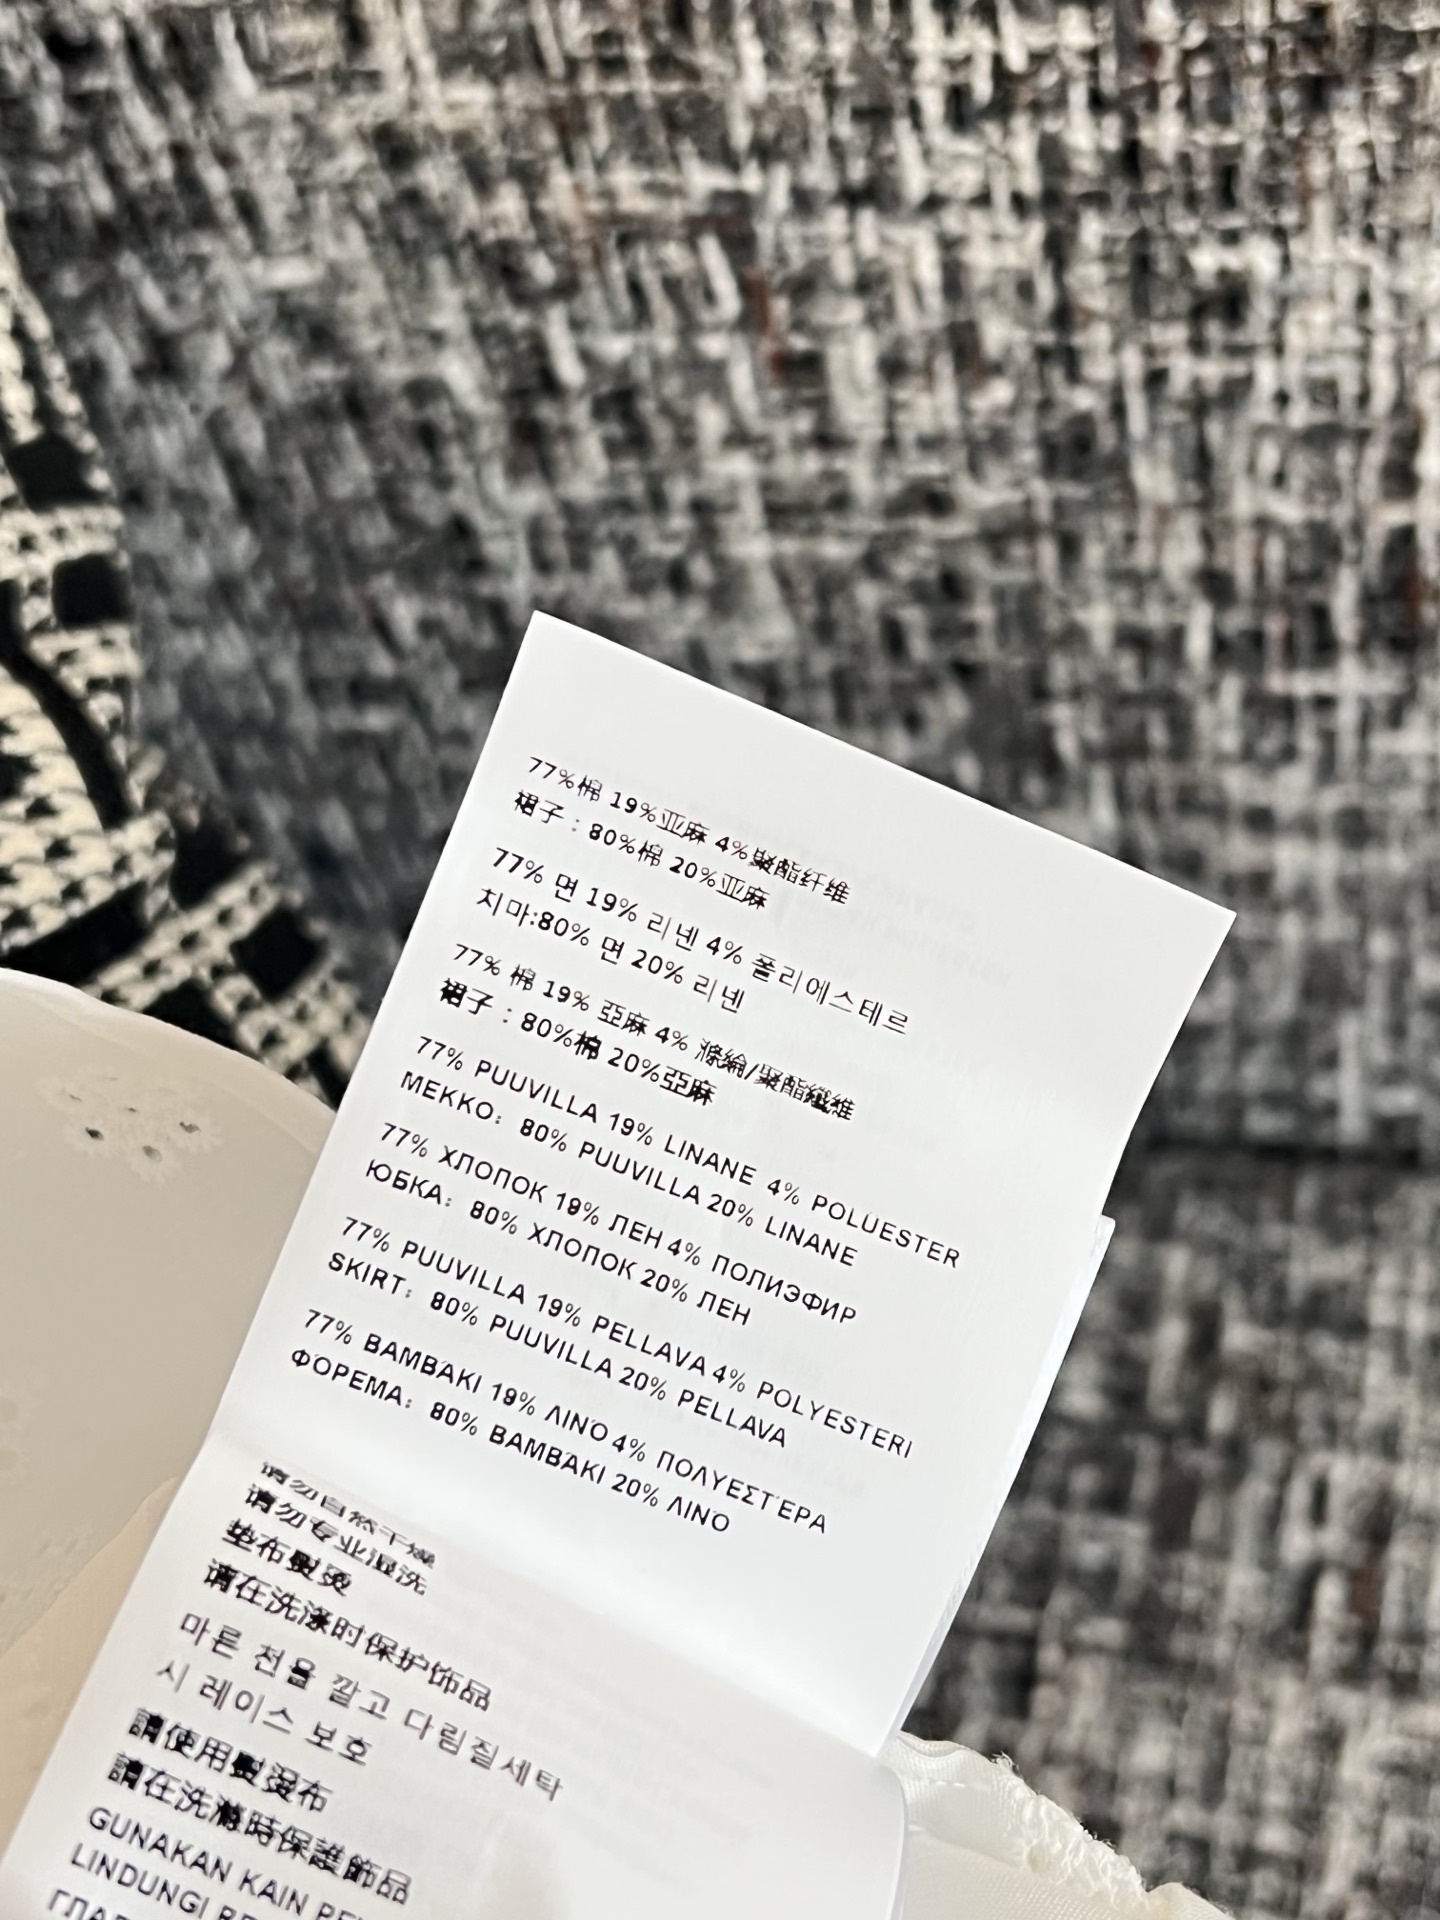 77%棉 19%亚麻 4%聚酯纤维
裙子：80%棉 20%亚麻
77% 면 19% 리넨 4% 폴리에스테르
치마:80% 면 20% 리넨
77% 棉 19% 亞麻 4% 滌綸/聚酯纖維
裙子：80%棉 20%亞麻
77% PUUVILLA 19% LINANE 4% POLÜESTER
MEKKO: 80% PUUVILLA 20% LINANE
77% ХЛОПОК 19% ЛЕН 4% ПОЛИЭФИР
ЮБКА: 80% ХЛОПОК 20% ЛЕН
77% PUUVILLA 19% PELLAVA 4% POLYESTERI
SKIRT: 80% PUUVILLA 20% PELLAVA
77% ΒΑΜΒΆΚΙ 19% ΛΙΝΌ 4% ΠΟΛΥΕΣΤΈΡΑ
ΦΌΡΕΜΑ: 80% ΒΑΜΒΆΚΙ 20% ΛΙΝΌ
请勿自然干燥
请勿专业湿洗
垫布熨烫
请在洗涤时保护饰品
마른 천을 깔고 다림질세탁
시 레이스 보호
請使用熨燙布
請在洗滌時保護飾品
GUNAKAN KAIN
LINDUNGI